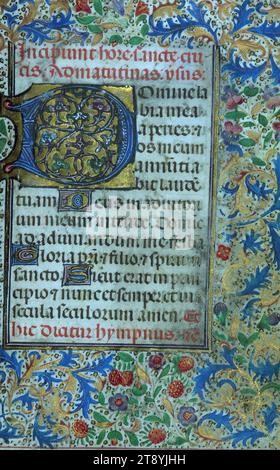 Incipiunt hore sancte cru
cis. Ad matutinas. v̄sus.
Domine la
bia mea
aperies. ⁊
os meum
annūtia
bit laudē
tuam Deus in adiutor
ium meum intende. Dom
ine ad adiuuandum me festina
Gloria pr̄i ⁊ filio ⁊ spiritui
sancto Sicut erat in prin
cipio ⁊ nunc ⁊ semper et in
secula seculorum amen. Et
hic dicatur hympnus.
alamy
Image ID: 2T8YJHH
www.alamy.com